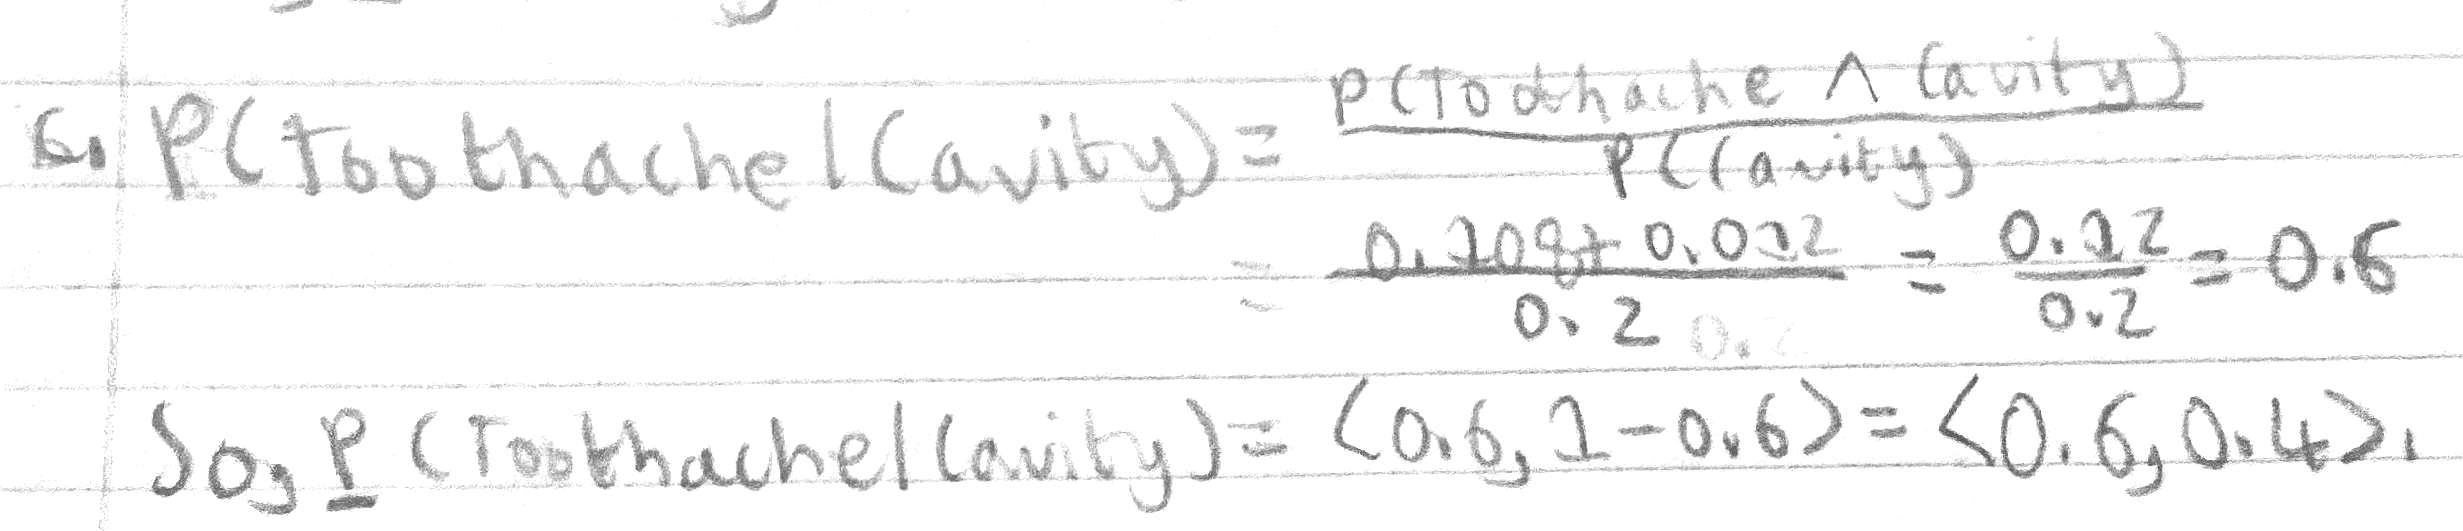 c. P(Toothache|Cavity) = P(Toothache ∧ Cavity) / P(Cavity)
= 0.108+0.012 / 0.2 = 0.12 / 0.2 = 0.6
So, P(Toothache|Cavity) = ⟨0.6, 1-0.6⟩ = ⟨0.6, 0.4⟩.